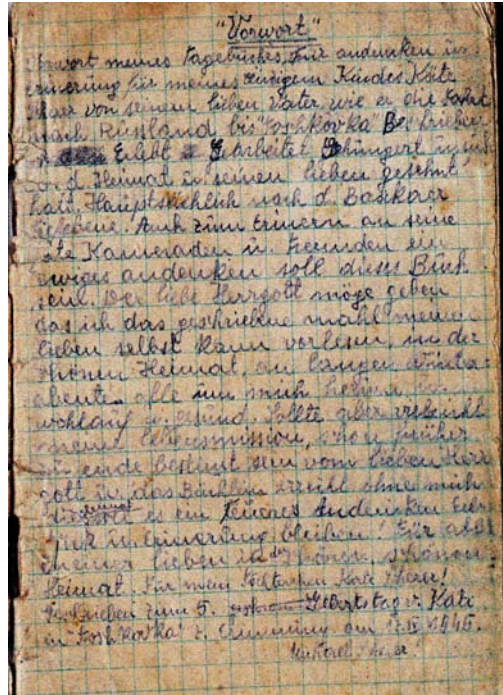 "Vorwort"
Vorwort meines Tagebuches, für andenken u
erinerung für meines einzigem Kindes Käte
von seinem lieben Vater, wie er die Fahrt
nach Russland bis "Foshkovka" Beschrieben
Erlebt Gearbeitet Gehüngert
d. Heimat u seinen lieben gesehnt
hatt. Hauptsächlich nach d.
Auch zum Erinern an seine
Kameraden u. freunden ein
ewiges andenken soll dieses Buch
sein. Der liebe Herrgott möge geben
das ich das geschriebene mahl meinen
lieben selbst kann vorlesen, in der
Heimat, an langen Winter
abenten alle um mich herum
wohlauf u. gesund. Sollte aber
meine lebensmission, schon früher
zu ende bestimt sein vom lieben Herr
gott u. das Büchlein ohne mich
es ein Teueres Andenken
u. Erinerung bleiben! Für all
meiner lieben in der schönen, schönen
Heimat. Für mein Töchterchen Kati
Geschrieben zum 5. Geburtstag v. Kati
in "Foshkovka" z. Erinnerung am 17.IV.1946.